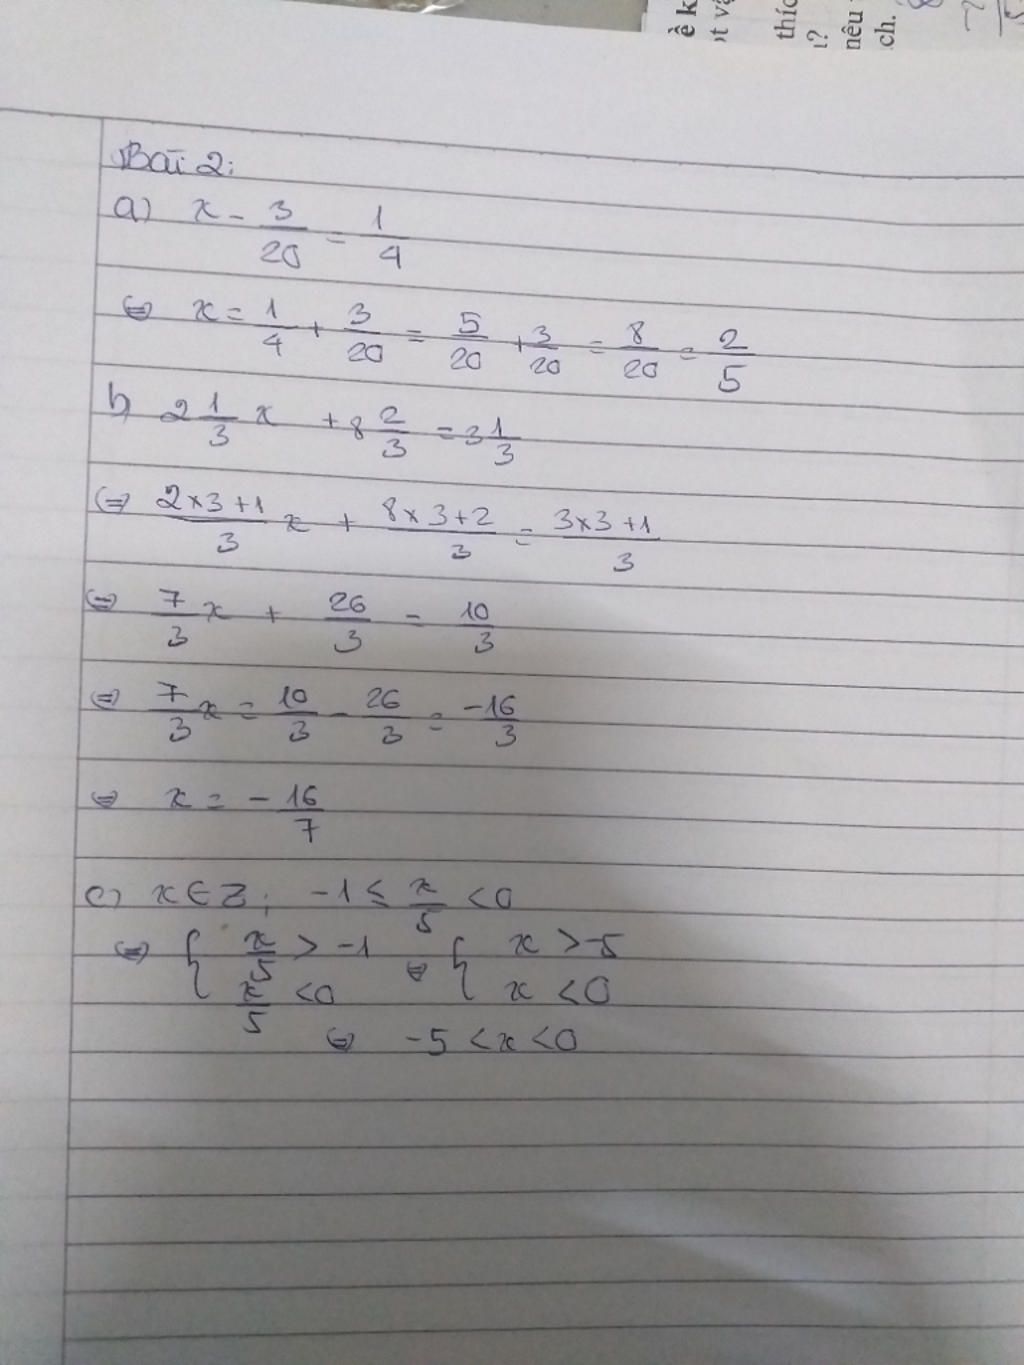 ề k
ột vậ
thíc
ì?
nêu
ch.
Bài 2:
a) x - 3/20 = 1/4
⇔ x = 1/4 + 3/20 = 5/20 + 3/20 = 8/20 = 2/5
b) 2 1/3 x + 8 2/3 = 3 1/3
⇔ 2×3+1/3 x + 8×3+2/3 = 3×3+1/3
⇔ 7/3 x + 26/3 = 10/3
⇔ 7/3 x = 10/3 - 26/3 = -16/3
⇔ x = - 16/7
c) x ∈ Z; -1 ≤ x/5 < 0
⇔ { x/5 > -1 ⇔ { x > -5
x/5 < 0 x < 0
⇔ -5 < x < 0